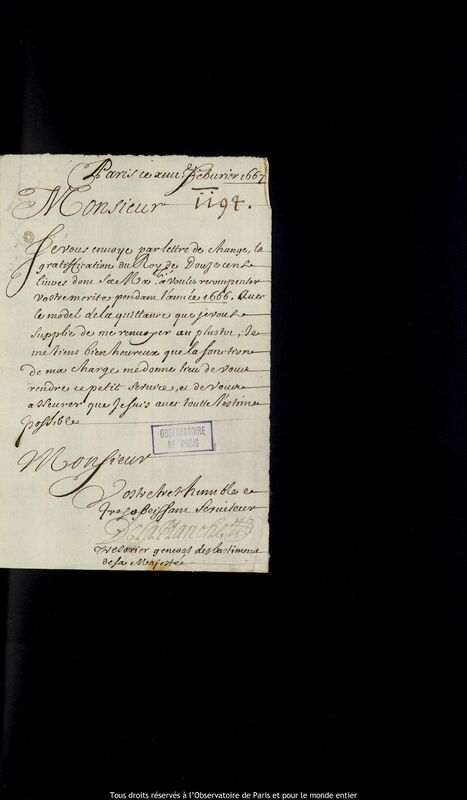 Paris ce xviii feburier 1667
Monsieur
1194.
Je vous envoye par lettre de change, la
gratiffication du Roy de Douze cens
liures dont sa Ma.té a voulu recompenser
vostre merite pendant l'année 1666. Auec
le model de la quittance que je vous
supplie de me renuoyer au plustost; Je
me tiens bien heureux que la fonction
de ma charge me donne lieu de vous
rendre ce petit seruice, et de vous
asseurer que Je suis auec toutte l'estime
possible
OBSERVATOIRE
DE PARIS
Monsieur
Vostre tres humble et
tres obeissant seruiteur
De la Planche
Tresorier general des bastimens
de sa Majesté
Tous droits réservés à l'Observatoire de Paris et pour le monde entier